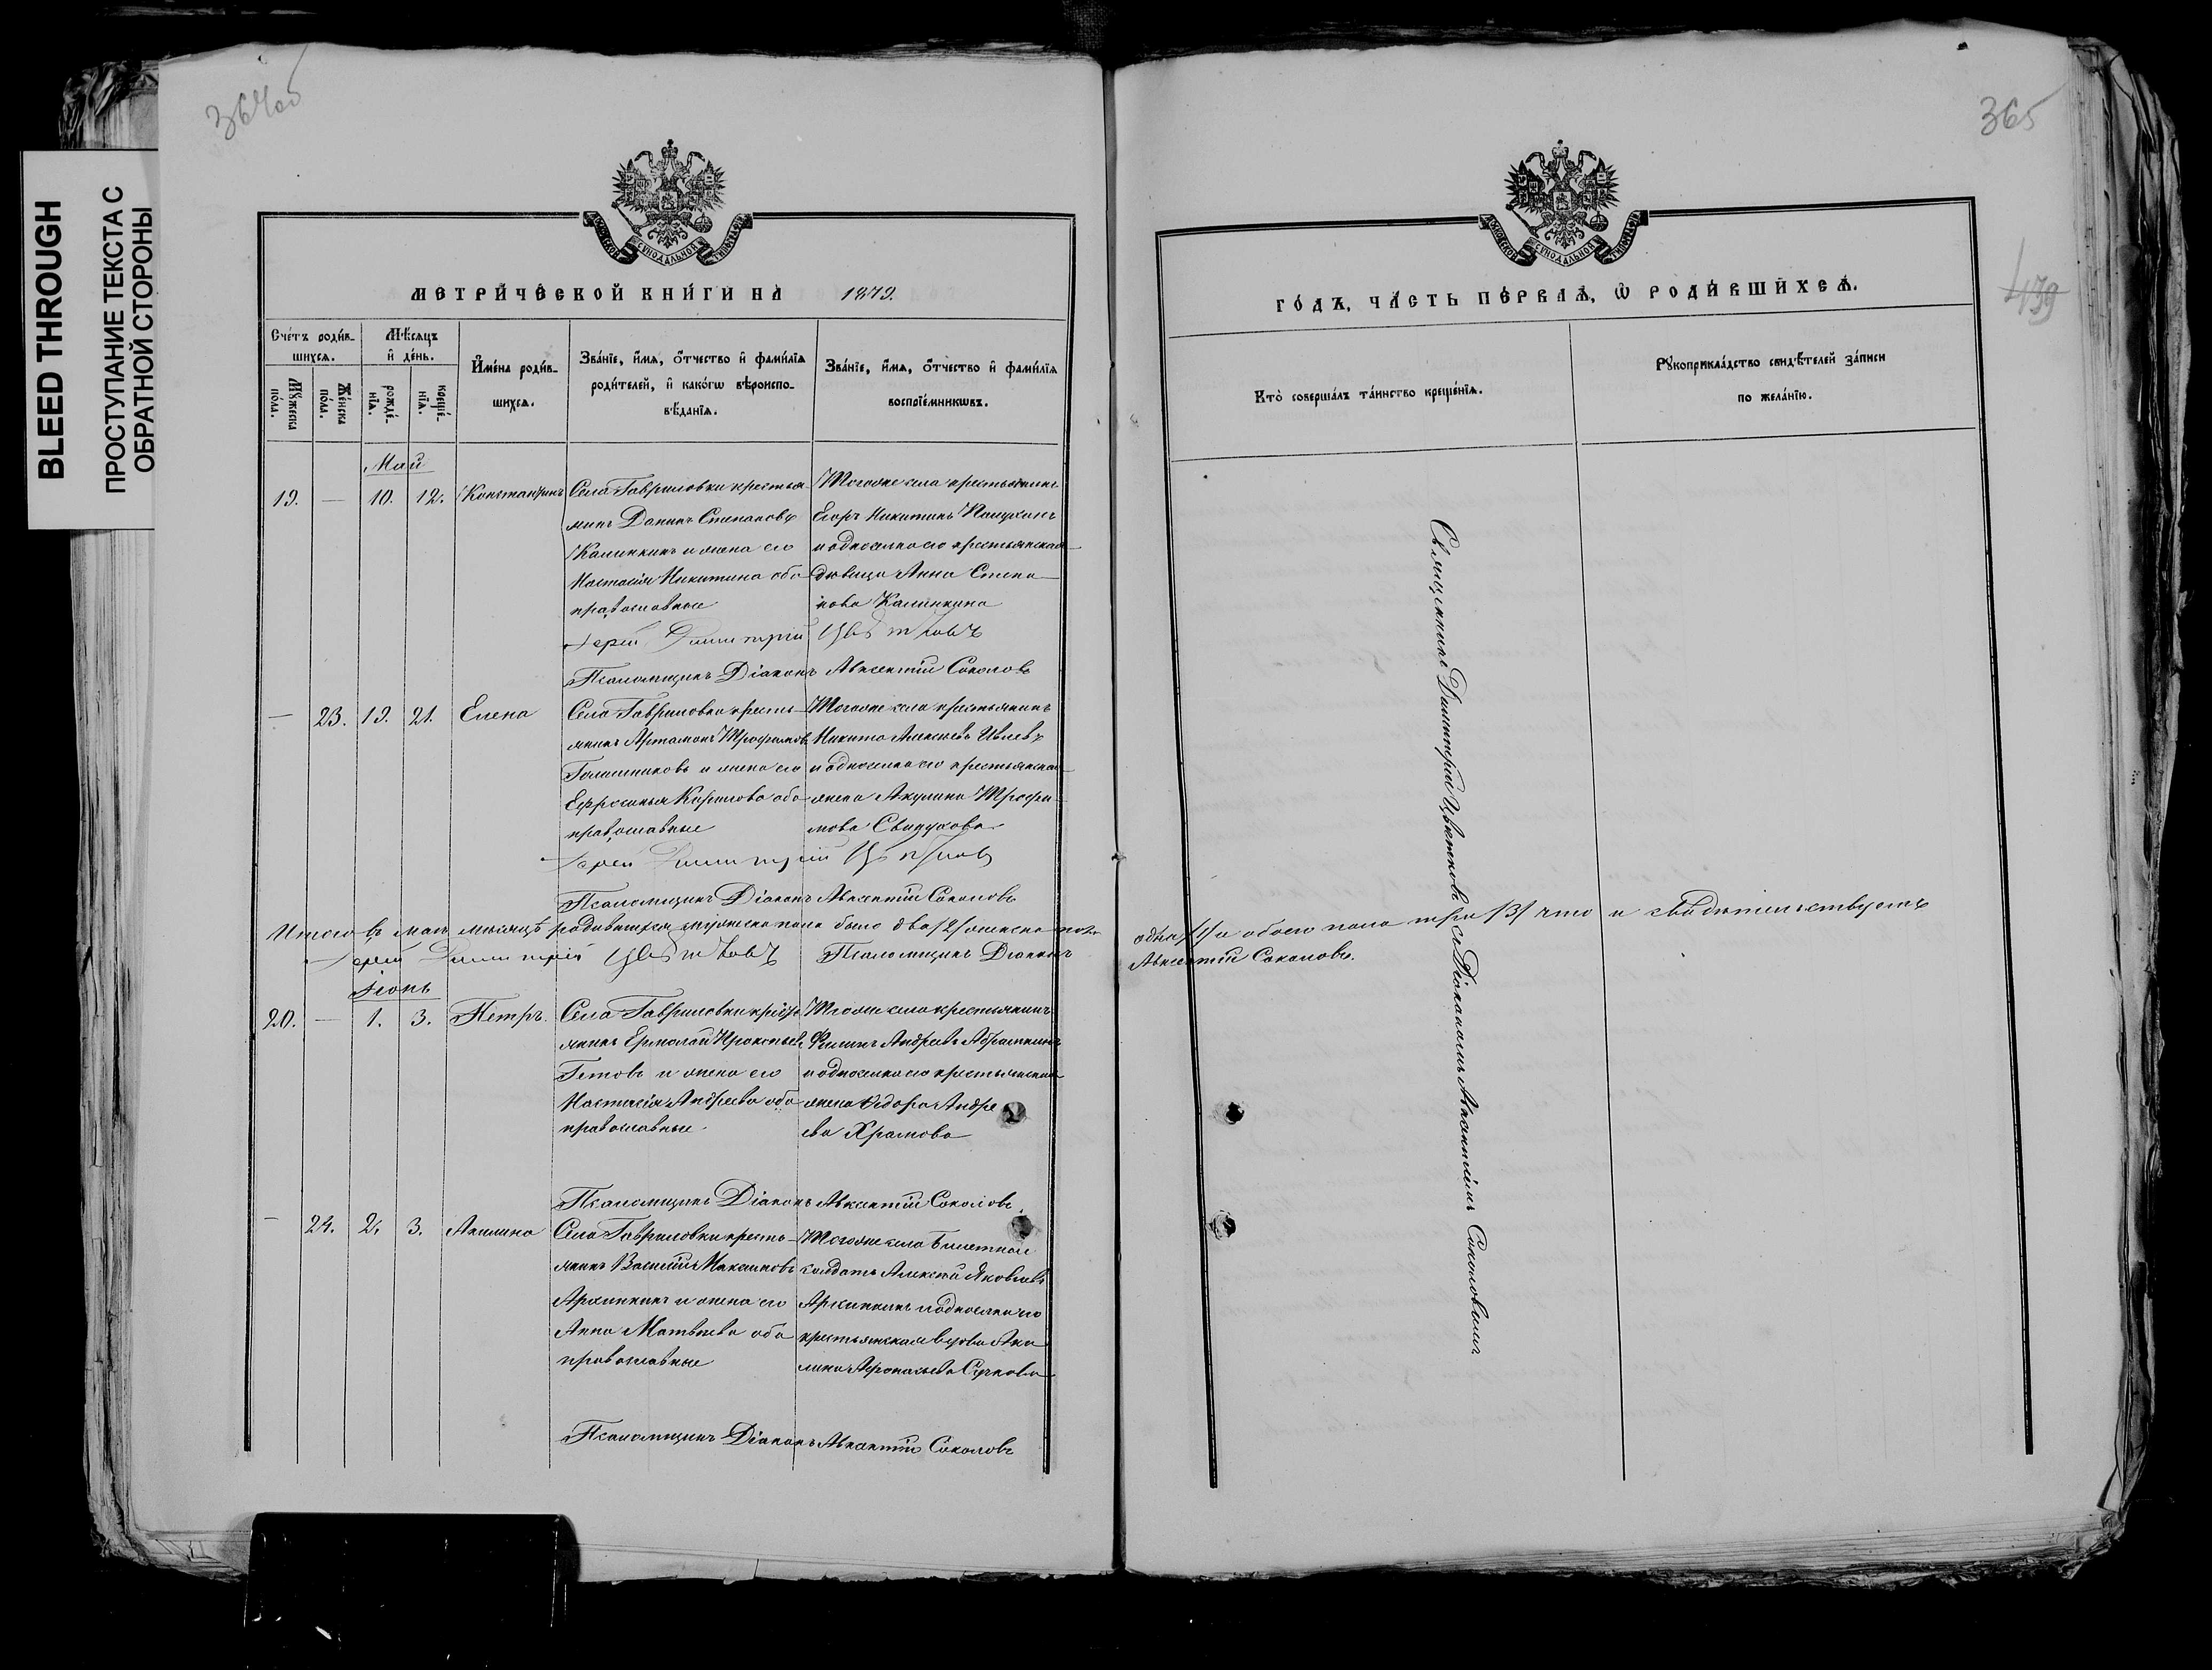 BLEED THROUGH
ПРОСТУПАНИЕ ТЕКСТА С
ОБРАТНОЙ СТОРОНЫ
364об
МЕТРИЧЕСКОЙ КНИГИ НА 1879.
Счетъ родив-
шихся.
Мужеска
пола.
Женска
пола.
Мѣсяцъ
и день.
рожде-
нія.
креще-
нія.
Имена родив-
шихся.
Званіе, имя, отчество и фамилія
родителей, и какогѡ вѣроиспо-
вѣданія.
Званіе, имя, отчество и фамилія
воспріемникѡвъ.
Май
19. — 10. 12. Константинъ
Села Гавриловки крестья-
нинъ Данилъ Степановъ
Калинкинъ и жена его
Настасія Никитина оба
православные
Тогоже села крестьянинъ
Егоръ Никитинъ
и односелка его крестьянская
дѣвица Анна Степа-
нова Калинкина
Іерей Димитрій Цвѣтковъ
Псаломщикъ Діаконъ Авксентій Соколовъ
— 23. 19. 21. Елена
Села Гавриловки кресть-
янинъ Артамонъ Трофимовъ
и жена его
Ефросинья Карпова оба
православные
Тогоже села крестьянинъ
Никита Алексѣевъ Ивлевъ
и односелка его крестьянская
жена Акулина Трофи-
мова
Іерей Димитрій Цвѣтковъ
Псаломщикъ Діаконъ Авксентій Соколовъ
Итого въ маѣ мѣсяцѣ родившихся мужеска пола было два /2/ женска пола
одна /1/ а обоего пола три /3/ что и свидѣтельствуемъ
Іерей Димитрій Цвѣтковъ Псаломщикъ Діаконъ
Авксентій Соколовъ.
Іюнь
20. — 1. 3. Петръ.
Села Гавриловки кресть-
янинъ Ермолай Прокопьевъ
и жена его
Настасія Андреева оба
православные.
Тогоже села крестьянинъ
Филипъ Андреевъ Абрашкинъ
и односелка его крестьянская
жена Ѳедора Андре
ева Храмова
Псаломщикъ Діаконъ Авксентій Соколовъ.
— 24. 2. 3. Акилина
Села Гавриловки кресть-
янинъ Василій Максимовъ
Архипкинъ и жена его
Анна Матвѣева оба
православные
Тогоже села билетной
солдатъ Алексѣй Яковлевъ
Архипкинъ и односелка его
крестьянская вдова Аки
лина Афонасьева
Псаломщикъ Діаконъ Авксентій Соколовъ
365
139
ГОДЪ, ЧАСТЬ ПЕРВАЯ, Ѡ РОДИВШИХСЯ.
Кто совершалъ таинство крещенія.
Рукоприкладство свидѣтелей записи
по желанію.
Священникъ Димитрій Цвѣтковъ съ Діакономъ Авксентіемъ Соколовымъ